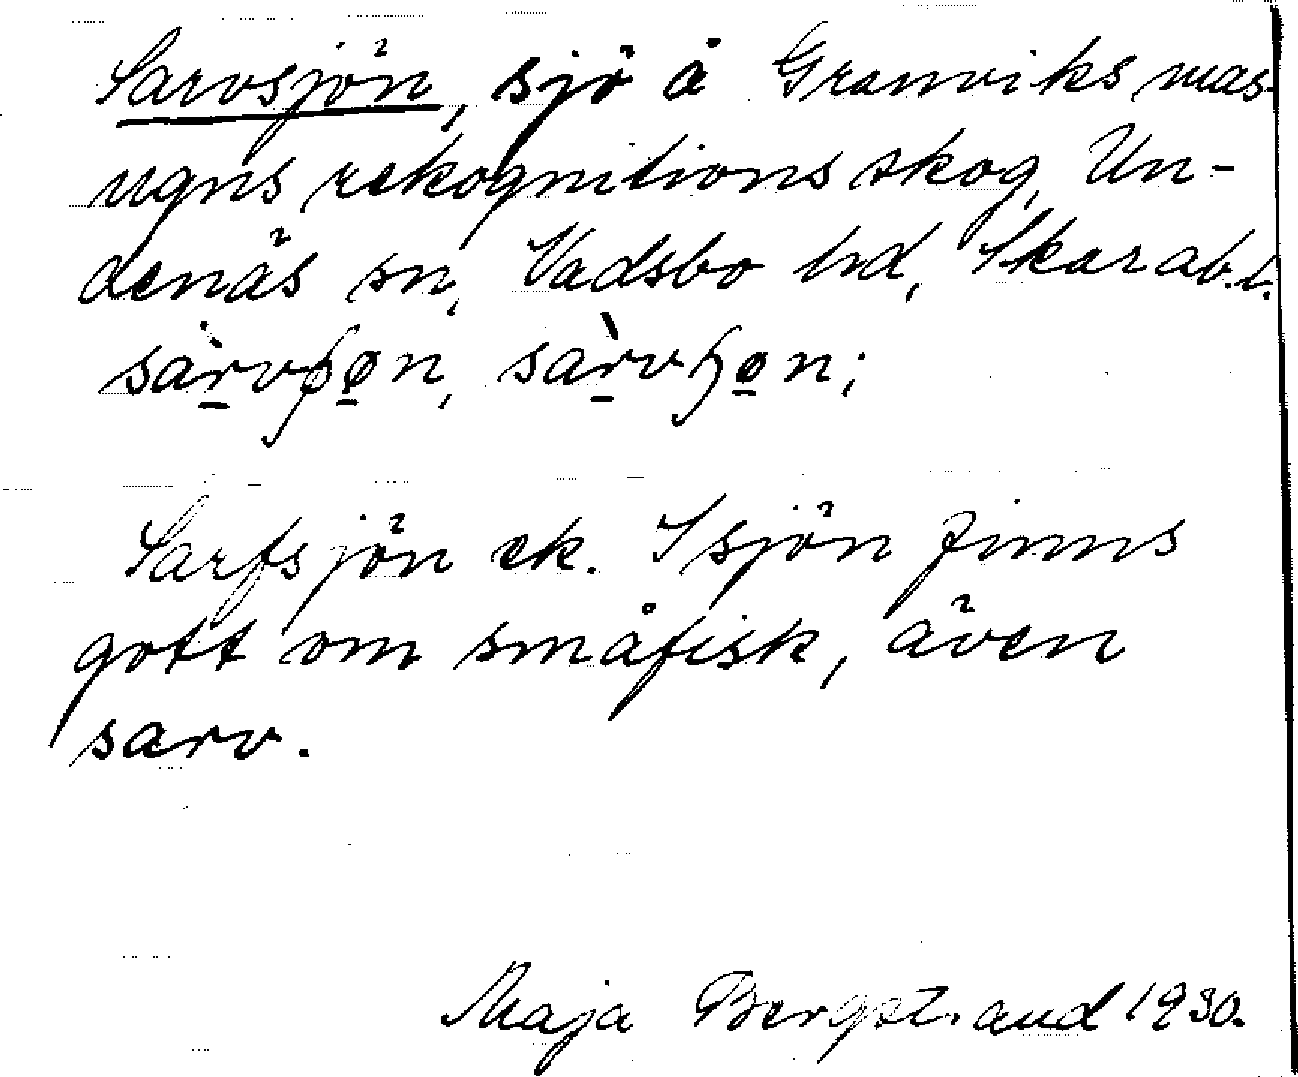 Sarvsjön, sjö å Granviks mas-
ugns rekognitionsskog, Un-
denäs sn, Vadsbo hd, Skarab. l.
Sarfsjön ek. I sjön finns
gott om småfisk, även
sarv.
Maja Bergstrand 1930.